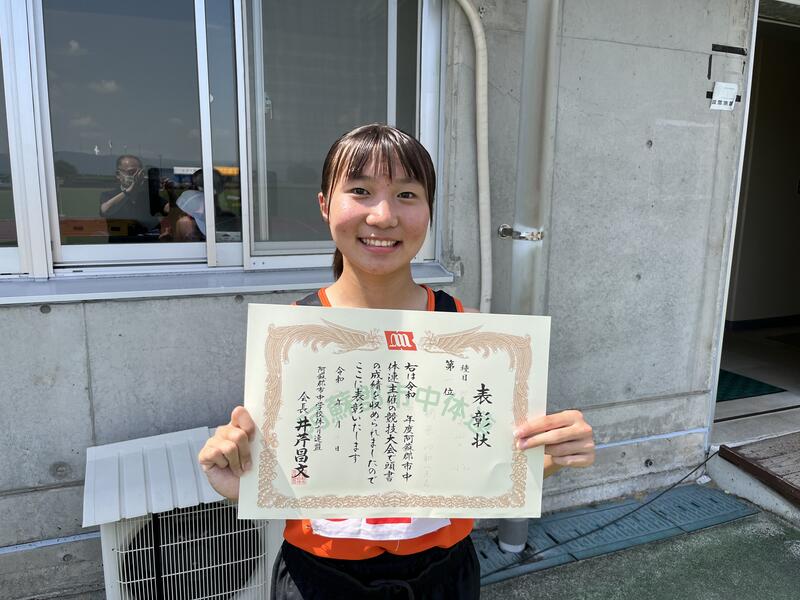 表彰状
種目
第 位
右は令和 年度阿蘇郡市中
体連主催の競技大会で頭書
の成績を収められましたので
ここに表彰いたします
令和 年 月 日
阿蘇郡市中学校体育連盟
会長 井芹昌文
阿蘇郡市中体連